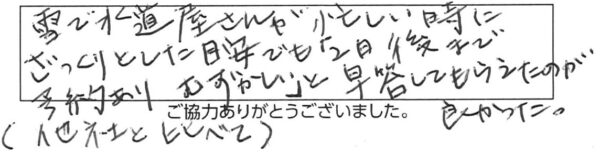 雪で水道屋さんが忙しい時に
ざっくりとした目安でも「2日後まで
予約あり むずかしい」と早答してもらえたのが
良かった。
ご協力ありがとうございました。
(他社とくらべて)